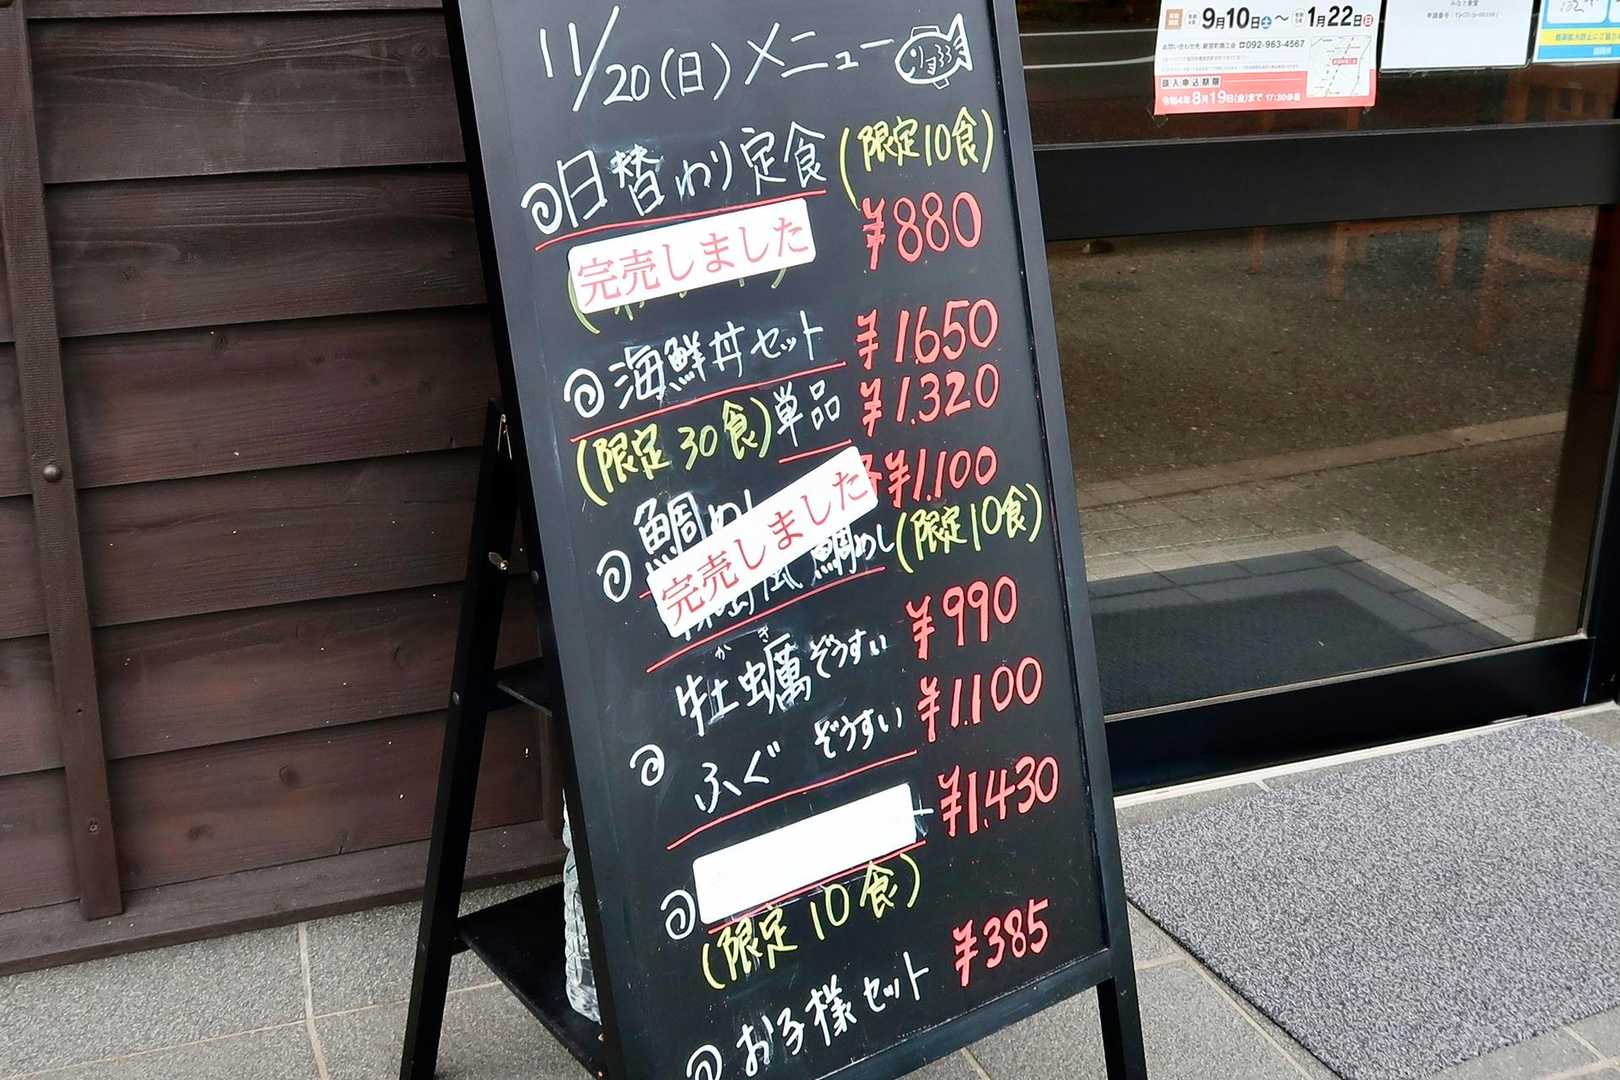 11/20(日)メニュー
日替わり定食
(限定10食)
¥880
完売しました
海鮮丼セット
¥1,650
単品
¥1,320
(限定30食)
鯛めし
¥1,100
完売しました
鯛めし
(限定10食)
牡蠣ぞうすい
かき
¥990
ふぐ ぞうすい
¥1,100
¥1,430
(限定10食)
お子様セット
¥385
9月10日(土)〜1月22日(日)
☎092-963-4567
購入申込期限
令和4年8月19日(金)まで 17:30必着